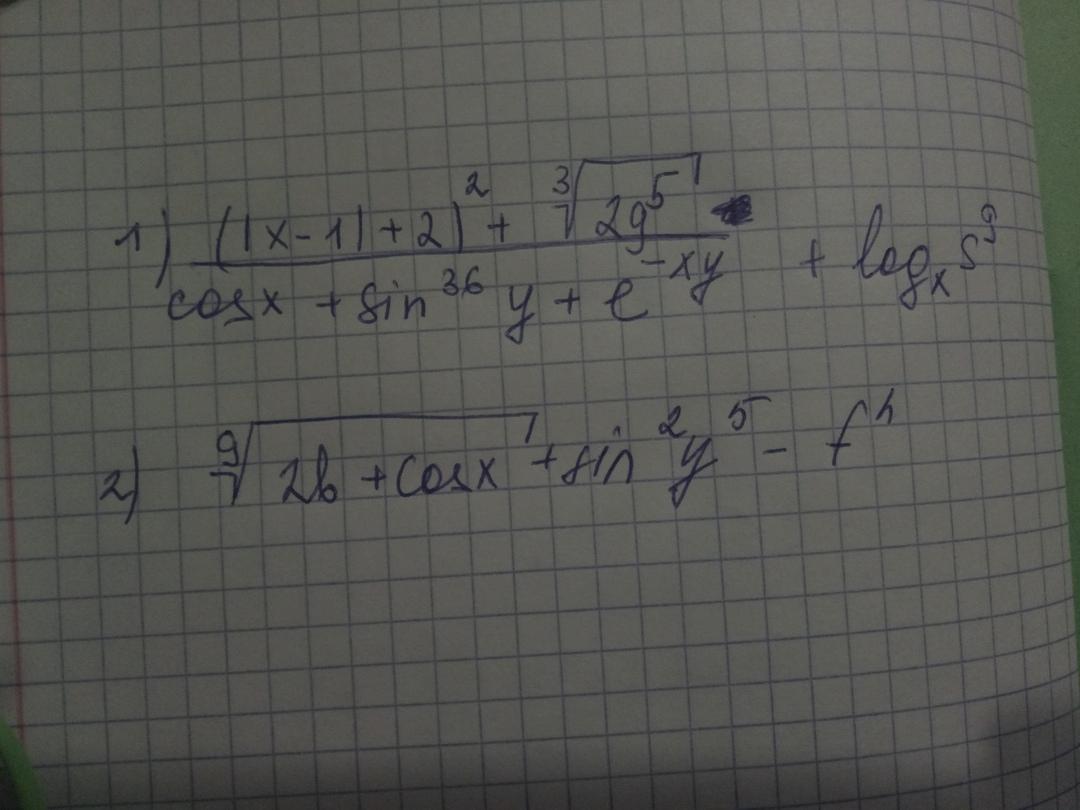 1) ((|x-1|+2)² + ∛(2g⁵)) / (cosx + sin³⁶ y + e^(-xy)) + logₓ s⁹
2) ⁹√(2b + cosx) + sin² y⁵ - f^h